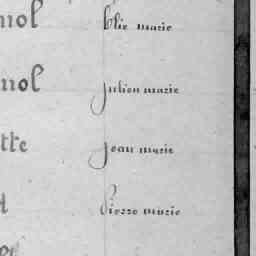 nol Elie marie
nol Julien marie
tte Jean marie
t Pierre marie